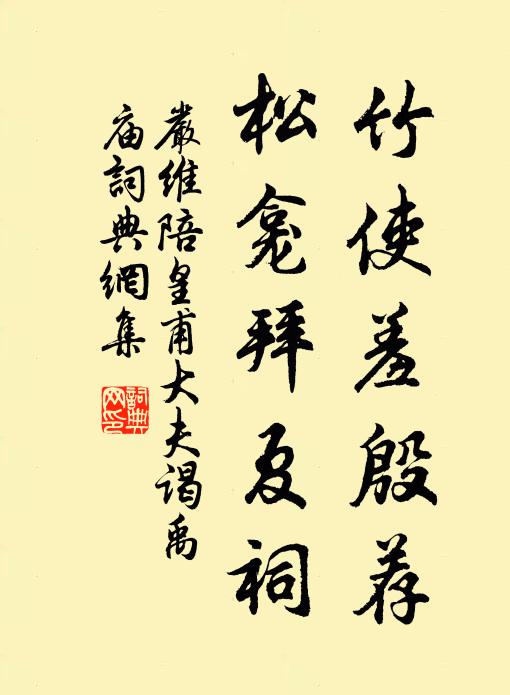 竹使羞殷荐
松龛拜夏祠
嚴维陪皇甫大夫谒禹
庙詞典網集
詞典网印